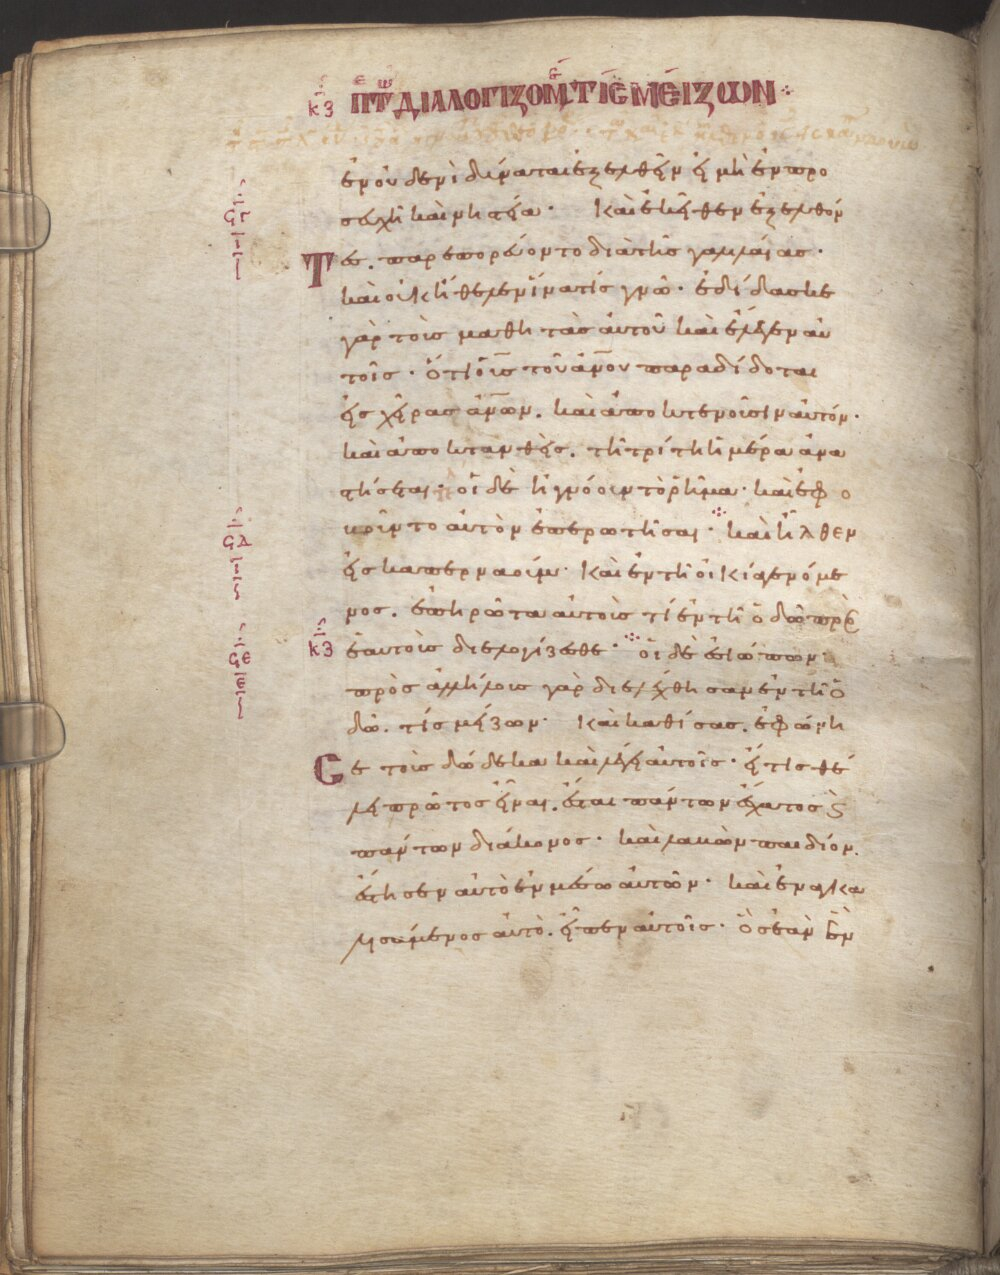 κζ π̅τ̅ ΔΙΑΛΟΓΙΖΟΜ ΤΙϹ ΜΕΙΖΩΝ
ἐν οὐδενὶ δύναται ἐξελθεῖν εἰ μὴ ἐν προ
σευχῆ καὶ νηστεία· Καὶ ἐκεῖθεν ἐξελθόν
Τες. παρεπορεύοντο διὰ τῆς γαλιλαίας·
καὶ οὐκ ἤθελεν ἵνα τίς γνῶ· ἐδίδασκε
γὰρ τοὺς μαθητὰς αὐτοῦ καὶ ἔλεγεν αυ
τοῖς· Ὅτι ὁ υ̅ς̅ τοῦ α̅ν̅ου παραδίδοται
εἰς χεῖρας α̅ν̅ων. καὶ ἀποκτενοῦσιν αὐτόν·
καὶ ἀποκτανθεὶς. τῆ τρίτη ἡμέρα ἀνα
στήσεται· οἱ δὲ ἠγνόουν τὸ ῥῆμα· καὶ ἐφο
βοῦντο αὐτὸν ἐπερωτῆσαι· καὶ ἦλθεν
εἰς καπερναούμ· Καὶ ἐν τῆ οἰκία γενόμε
νος. ἐπηρώτα αὐτοὺς τί ἐν τῆ ὁδῶ πρὸς
κζ ἑαυτοὺς διελογίζεσθε· οἱ δὲ ἐσιώπων·
πρὸς ἀλλήλους γὰρ διελέχθησαν ἐν τῆ ὁ
δῶ. τίς μείζων· Καὶ καθίσας. ἐφώνη
Σε τοὺς δώδεκα καὶ λέγει αὐτοῖς· εἴ τις θέ
λει πρῶτος εἶναι. ἔσται πάντων ἔσχατος ϗ
πάντων διάκονος· καὶ λαβὼν παιδίον.
ἔστησεν αὐτὸ ἐν μέσω αὐτῶν· καὶ ἐναγκα
λισάμενος αὐτὸ. εἶπεν αὐτοῖς· Ὃς ἐὰν ἓν